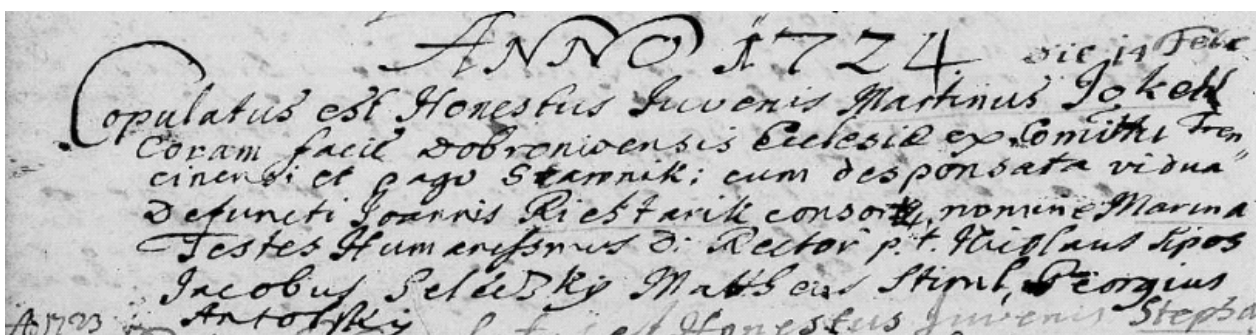 ANNO 1724 die 14 Febr
Copulatus est Honestus Iuvenis Martinus Jokell
Coram facie Dobroniwensis Ecclesiæ ex Comittu Tren
cinensi et pago Stawnik: cum desponsata vidua
Defuncti Joannis Richtarik consorte, nomine Marina
Testes Humanissmus D: Rector p.t. Nicolaus Sipos
Jacobus Seleczky Mattheus Georgius
Antolsky est Honestus Juvenis Stepha
Ao 1723